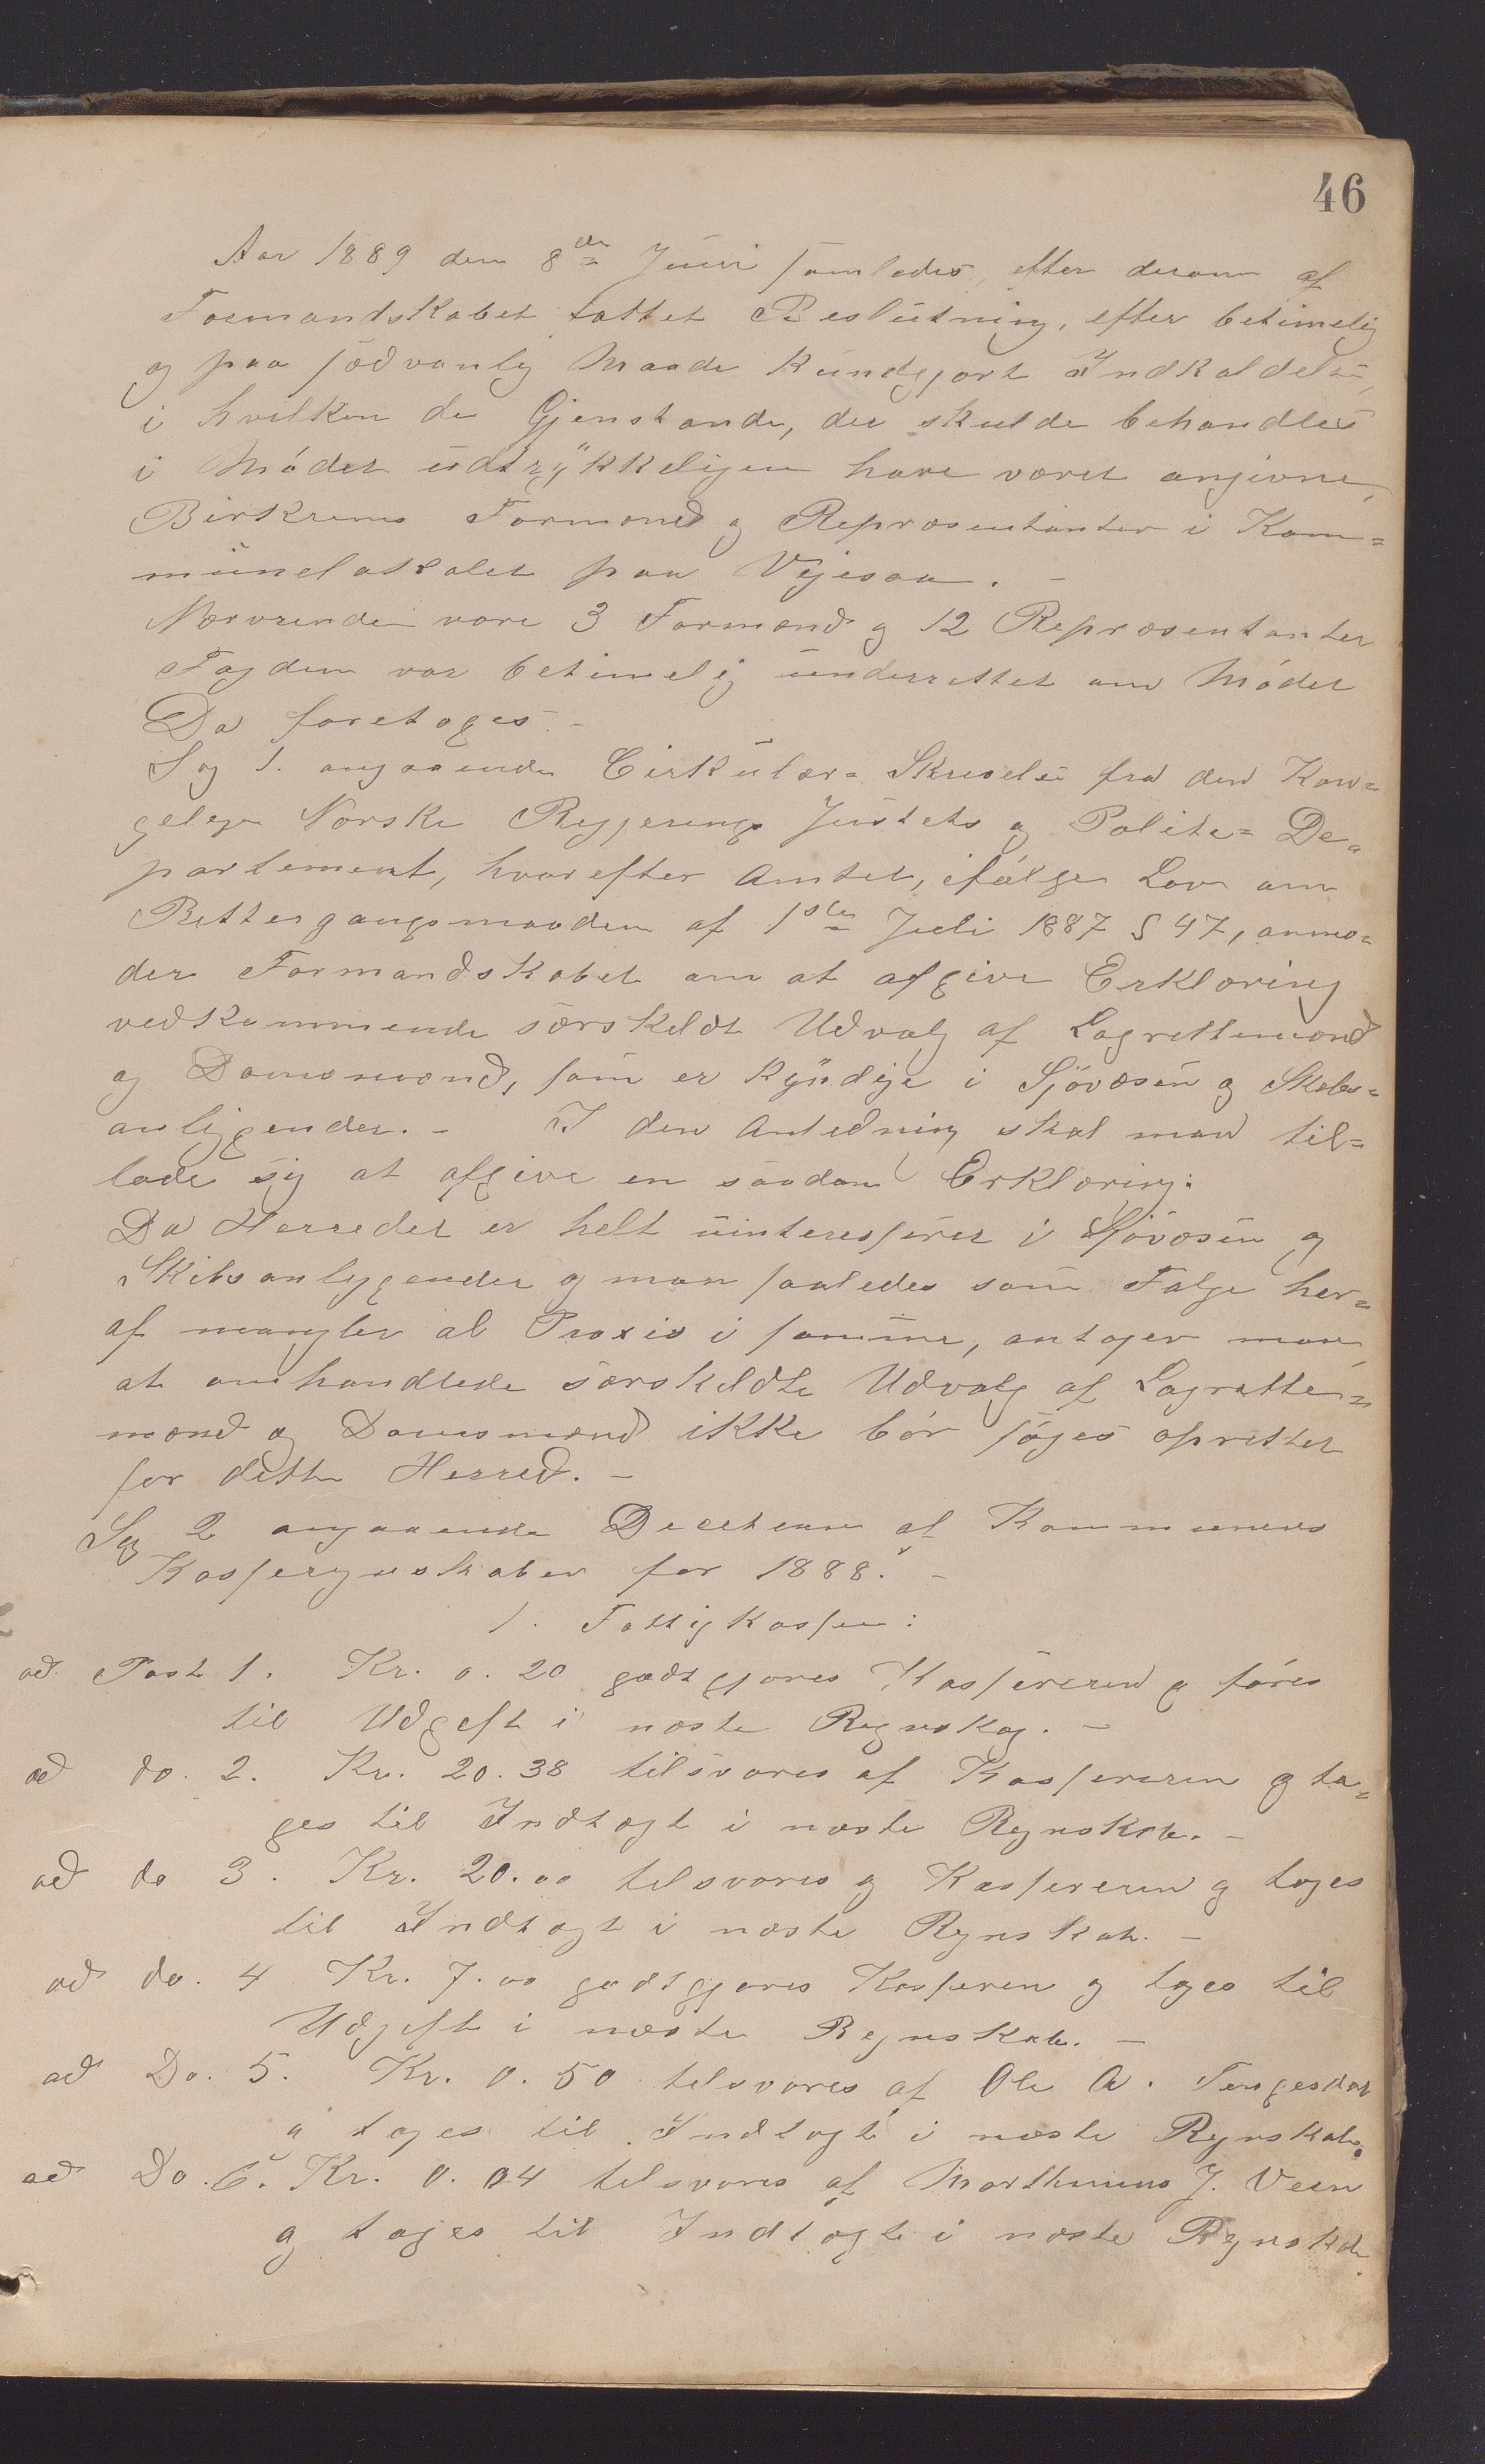 46
Aar 1889 den 8de Juni samledes, efter derom af
Formandskabet fattet Beslutning, efter betimelig
og paa sædvanlig Maade kundgjort Indkaldelse,
i hvilken de Gjenstande, der skulde behandles
i Mødet udtrykkeligen have været angivne,
Birkrems Formænd og Repræsentanter i Kom=
munelokalet paa Vigesaa. –
Nærværende vare 3 Formænd og 12 Repræsentanter
Fogden var betimelig underrettet om Mødet
Da foretoges. –
Sag 1. angaaende Cirkulær= Skrivelse fra den Kon=
gelige Norske Regjerings Justets og Politi= De=
partement, hvorefter Amtet, ifølge Lov om
Rettergangsmaaden af 1ste Juli 1887 § 47, anmo=
der Formandskabet om at afgive Erklæring
vedkommende særskildt Udvalg af Lagrettemænd
og Domsmænd, som er kyndige i Sjøvæsen og Skibs=
anliggender. – I den Anledning skal man til=
lade sig at afgive en saadan Erklæring:
Da Herredet er helt uinteresseret i Sjøvæsen og
Skibsanliggender og man saaledes som Følge her=
af mangler al Praxis i samme, antager man,
at omhandlede særskildte Udvalg af Lagrette=
mænd og Domsmænd ikke bør søges oprettet
for dette Herred. –
Sag 2 angaaende Decition af Kommunens
Kasseregnskaber for 1888. –
1. Fattigkassen:
ad Post 1. Kr. 0.20 godtgjøres Kassereren og føres
til Udgift i næste Regnskag. –
ad do. 2. Kr. 20.38 tilsvares af Kassereren og ta=
ges til Indtægt i næste Regnskab. –
ad do 3. Kr. 20.00 tilsvares og Kassereren og tages
til Indtægt i næste Regnskab. –
ad do. 4 Kr. 7.00 godtgjøres Kasseren og tages til
Udgift i næste Regnskab. –
ad Do. 5. Kr. 0.50 tilsvares af Ole A. Tengesdal
og tages til Indtægt i næste Regnskab.
ad Do. 6. Kr. 0.04 tilsvares af Marthinius J. Veen
og tages til Indtægt i næste Regnskab.